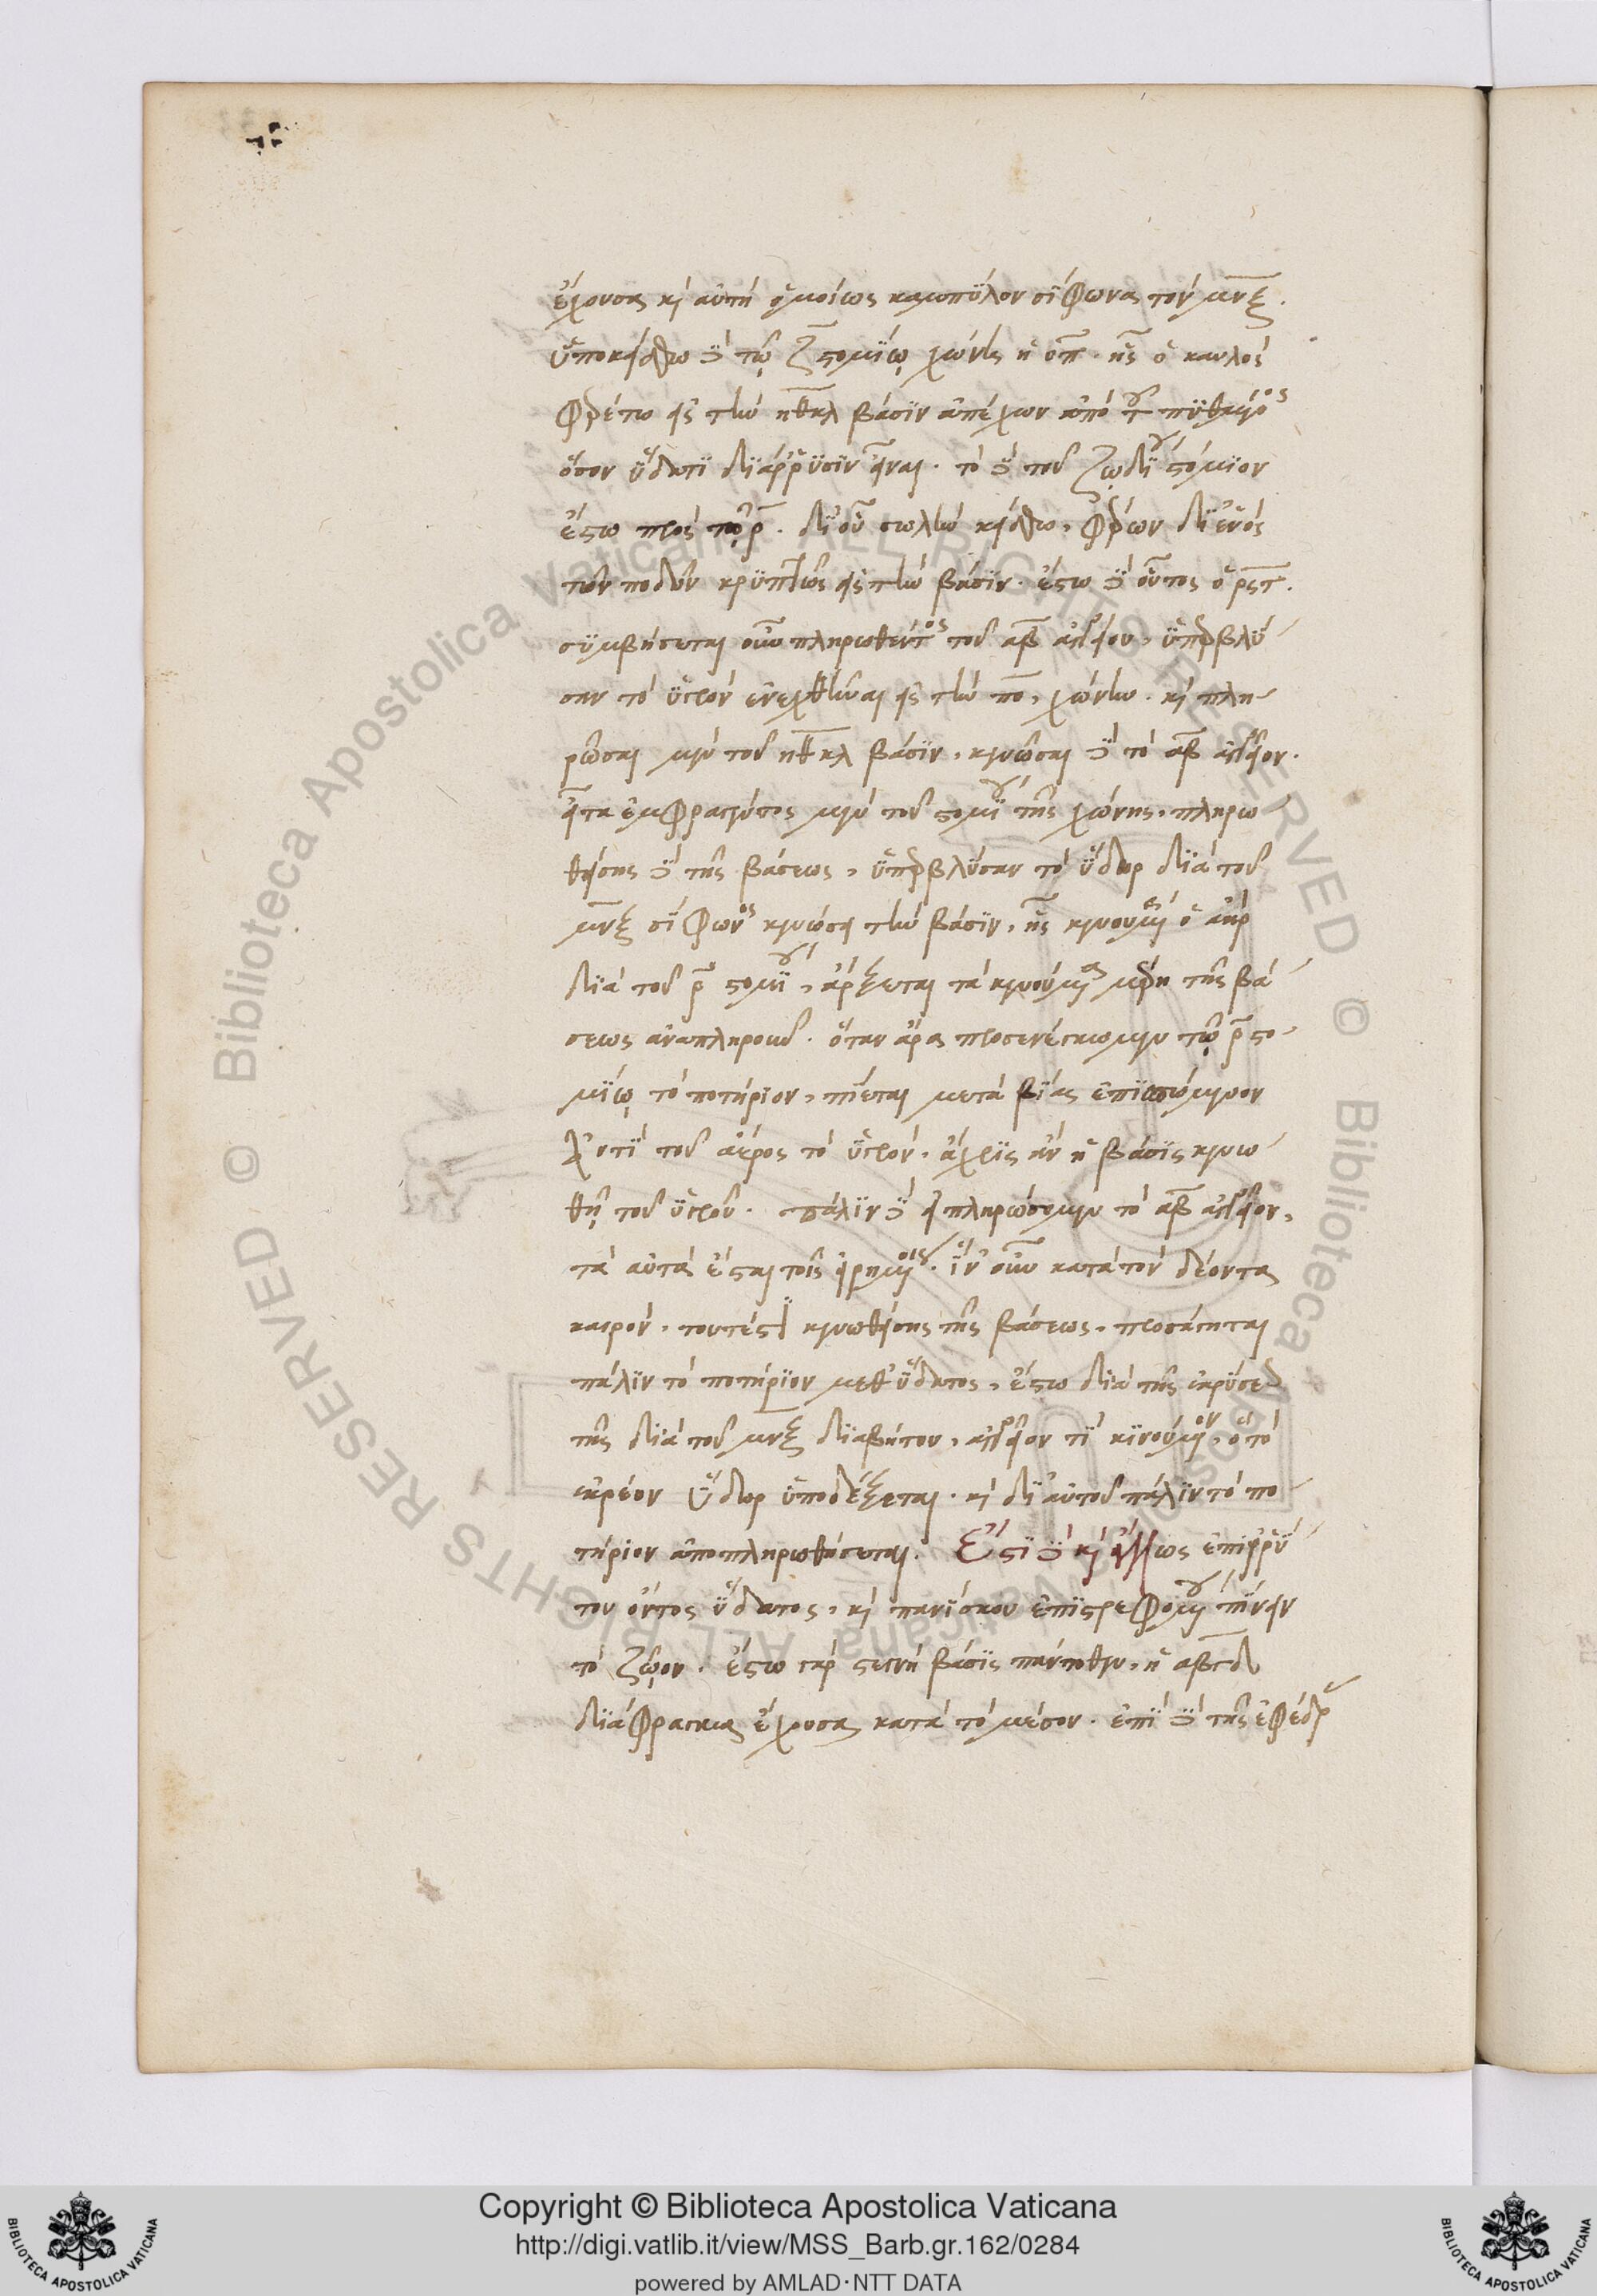 ἔχουσα καὶ αὐτὴ ὁμοίως καμπύλον σίφωνα τὸν μνξ.
ὑποκείσθω δὲ τῷ ζ στομίῳ χώνη ἡ οπ. ἧς ὁ καυλὸς
φερέτω εἰς τὴν ηθκλ βάσιν ἀπέχων ἀπὸ τοῦ πυθμένος
ὅσον ὕδατι διάρρυσιν εἶναι. τὸ δὲ τοῦ ζῳδίου στόμιον
ἔστω πρὸς τῷ ρ. δι' οὗ σωλὴν κείσθω, φέρων δι' ἑνὸς
τῶν ποδῶν κρυπτῶς εἰς τὴν βάσιν. ἔστω δὲ οὗτος ὁ ρστ.
συμβήσεται οὖν πληρωθέντος τοῦ αβ ἀγγείου, ὑπερβλύ
σαν τὸ ὑγρὸν ἐνεχθῆναι εἰς τὴν πο, χώνην. καὶ πλη
ρῶσαι μὲν τοῦ ηθκλ βάσιν, κενῶσαι δὲ τὸ αβ ἀγγεῖον.
εἶτα ἐμφραγέντος μὲν τοῦ στομίου τῆς χώνης, πληρω
θείσης δὲ τῆς βάσεως, ὑπερβλύσαν τὸ ὕδωρ διὰ τοῦ
μνξ σίφωνος κενώσει τὴν βάσιν, ἧς κενουμένης ὁ ἀὴρ
διὰ τοῦ ρ στομίου, ἄρξεται τὰ κενούμενα μέρη τῆς βά
σεως ἀναπληροῦν. ὅταν ἄρα προσενέγκωμεν τῷ ρ στο
μίῳ τὸ ποτήριον, πίεται μετὰ βίας ἐπισπώμενον
ἀντὶ τοῦ ἀέρος τὸ ὑγρὸν. ἄχρις ἂν ἡ βάσις κενω
θῇ τοῦ ὑγροῦ. πάλιν δὲ εἰ πληρώσομεν τὸ αβ ἀγγεῖον,
τὰ αὐτὰ ἔσται τοῖς εἰρημένοις. ἵν' οὖν κατὰ τὸν δέοντα
καιρὸν, τουτέστι κενωθείσης τῆς βάσεως, προσάγηται
πάλιν τὸ ποτήριον μεθ' ὕδατος, ἔστω διὰ τῆς ἐκρύσεως
τῆς διὰ τοῦ μνξ διαβήτου, ἀγγεῖον τι κινούμενον, ὃ τὸ
ἐκρέον ὕδωρ ὑποδέξεται. καὶ δι' αὐτοῦ πάλιν τὸ πο
τήριον ἀποπληρωθήσεται. Ἔστι δὲ καὶ ἄλλως ἐπιρρύ
του ὄντος ὕδατος, καὶ πανίσκου ἐπιστρεφομένου πίνειν
τὸ ζῷον. ἔστω γὰρ στεγνὴ βάσις πάντοθεν, ἡ αβγδ
διάφραγμα ἔχουσα κατὰ τὸ μέσον. ἐπὶ δὲ τῆς ἐφέδρ